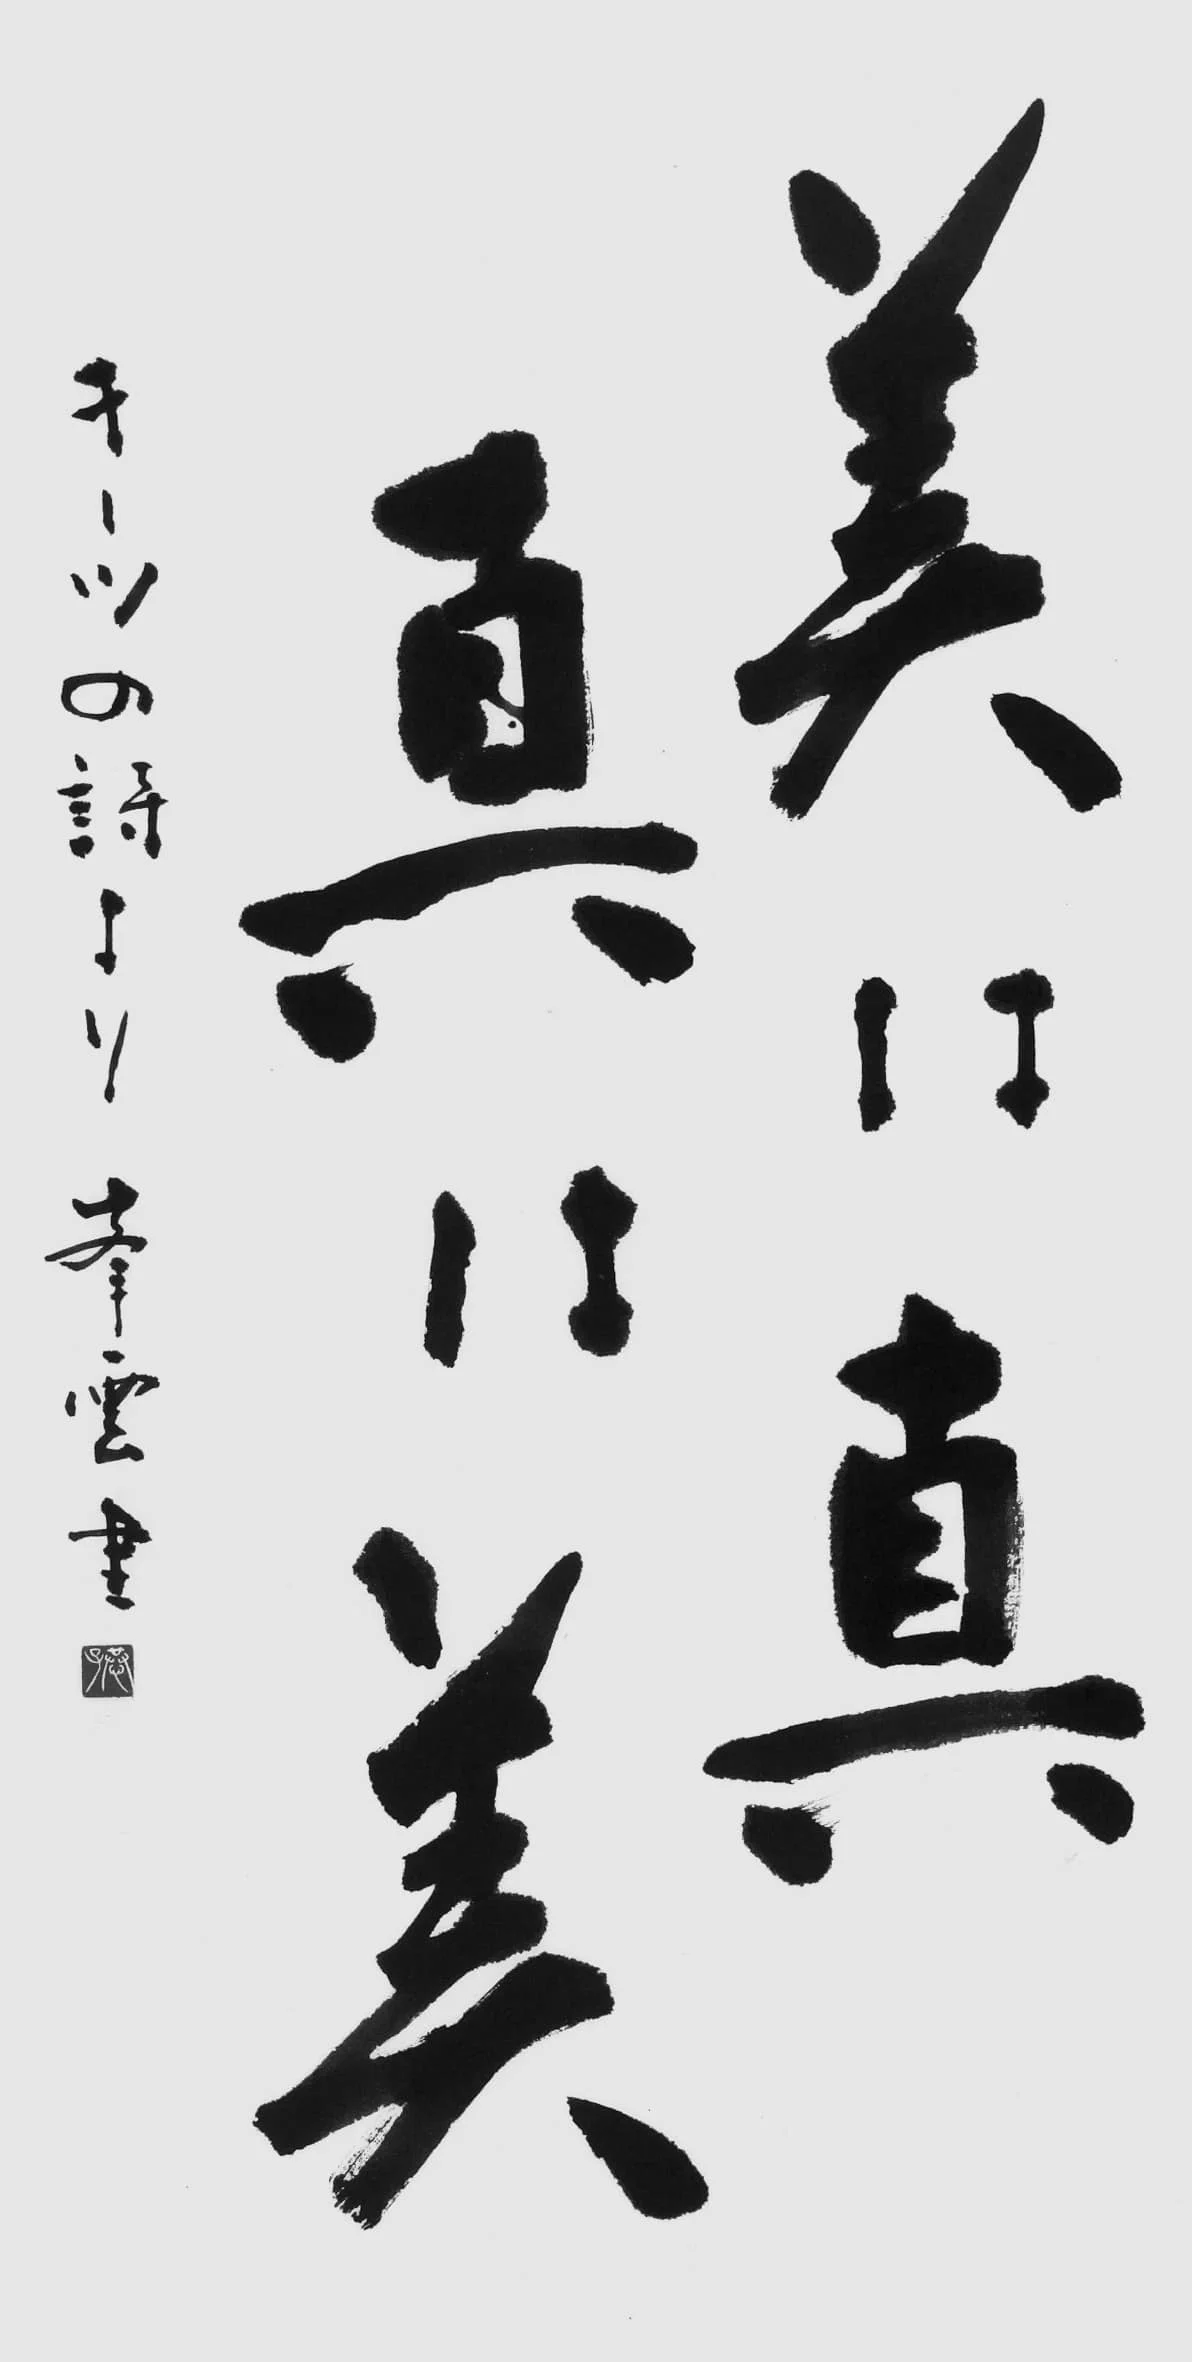 美は真
真は美
キーツの詩より 峯雲書